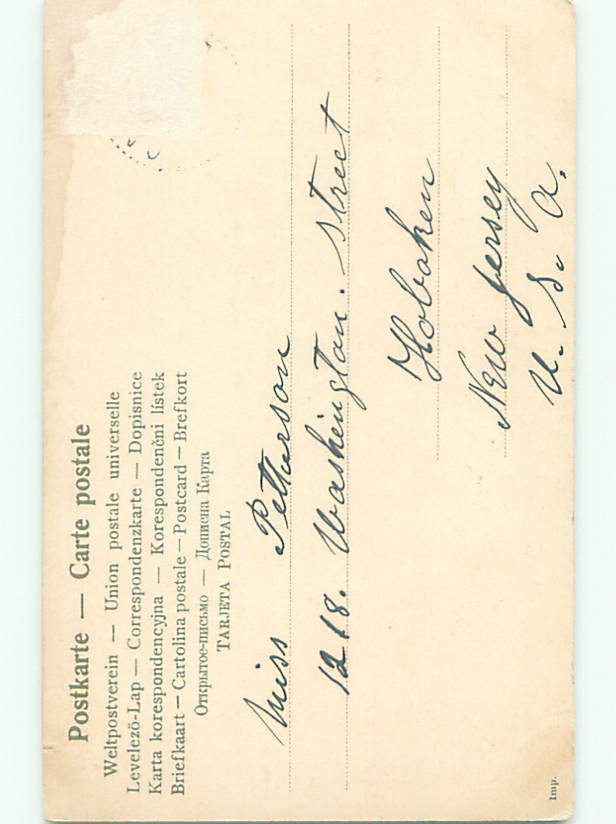 Postkarte — Carte postale
Weltpostverein — Union postale universelle
Levelező-Lap — Correspondenzkarte — Dopisnice
Karta korespondencyjna — Korespondenční lístek
Briefkaart — Cartolina postale — Postcard — Brefkort
Открытое-письмо — Дописна Карта
TARJETA POSTAL
Miss Petturson
1218. Washington. Street
Hoboken
New Jersey
U. S. A.
Imp.